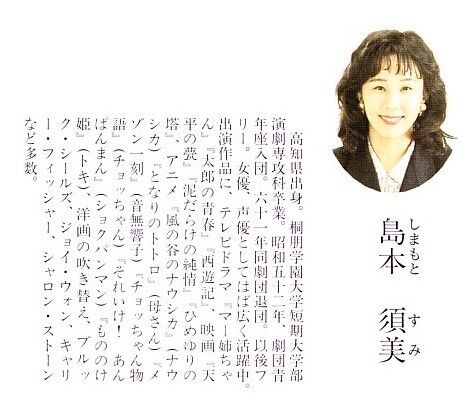 しまもと すみ
島本 須美
高知県出身。桐朋学園大学短期大学部
演劇専攻科卒業。昭和五十二年、劇団青
年座入団。六十一年同劇団退団。以後フ
リー。女優、声優としてはば広く活躍中。
出演作品に、テレビドラマ『マー姉ちゃ
ん』『太郎の青春』『西遊記』、映画『天
平の甍』『泥だらけの純情』『ひめゆりの
塔』、アニメ『風の谷のナウシカ』(ナウ
シカ)『となりのトトロ』(母さん)『メ
ゾン一刻』(音無響子)『チョッちゃん物
語』(チョッちゃん)『それいけ!あん
ぱんまん』(ショクパンマン)『もののけ
姫』(トキ)、洋画の吹き替え、ブルッ
ク・シールズ、ジョイ・ウォン、キャリ
ー・フィッシャー、シャロン・ストーン
など多数。